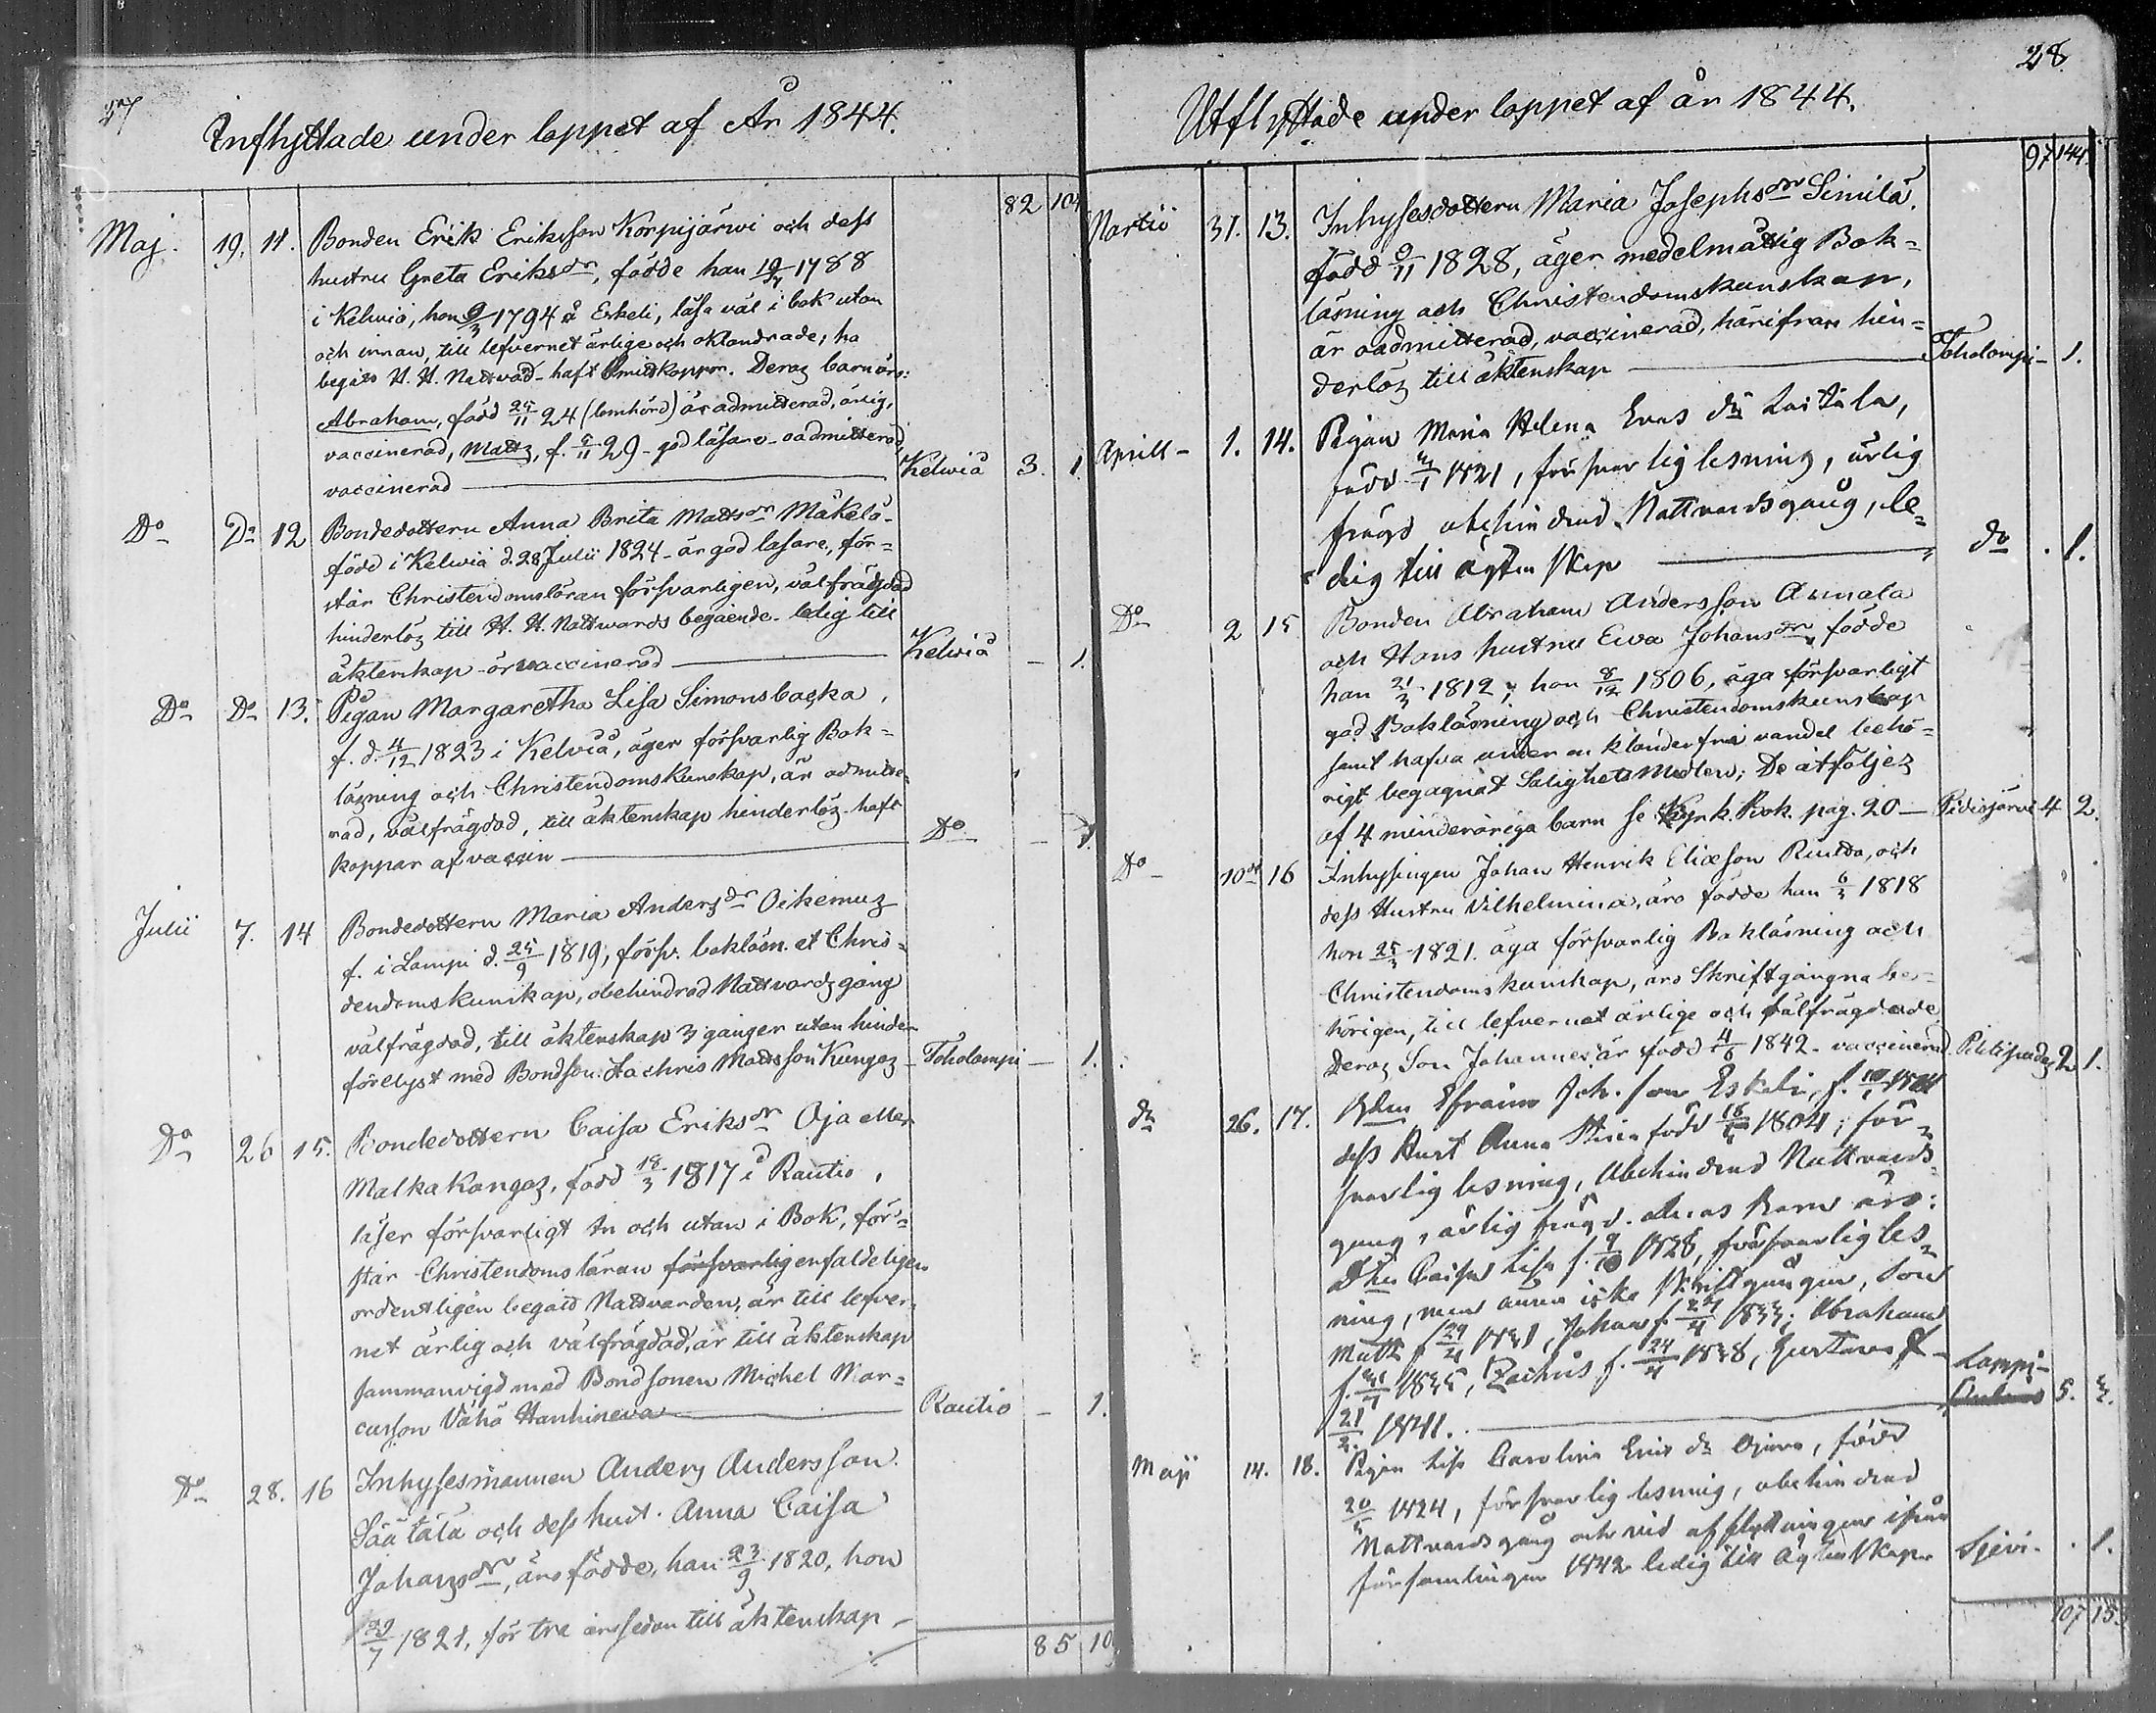 27
Inflyttade under loppet af År 1844.
82 104
Maj. 19. 11. Bonden Erik Eriksson Korpijärwi och dess
hustru Greta Eriksdr, födde han 19/4 1788
i Kelwiå, hon 9/3 1794 å Eskeli, läsa väl i bok utan
och innan, till lefvernet ärlige och oklandrade; ha
begått H. H. Nattvard - haft Smittkoppor. Deras barn äro:
Abraham, född 25/11 24 (lomhörd) är admitterad, ärlig,
vaccinerad, Matts, f. 5/11 29 - god läsare - oadmitterad,
vaccinerad Kelwiå 3. 1
Do Do 12 Bondedottern Anna Brita Mattsdr Mäkelä -
född i Kelwiå d. 28 Julii 1824 - är god läsare, för=
står Christendomsläran försvarligen, välfrägdad
hinderlös till H. H. Nattwards begående - ledig till
äktenskap - är vaccinerad Kelwiå - 1.
Do Do 13. Pigan Margaretha Lisa Simonsbacka,
f. d. 4/12 1823 i Kelviå, äger försvarlig Bok=
läsning och Christendomskunskap, är admitte=
rad, välfrägdad, till äktenskap hinderlös - haft
koppor af vaccin Do - 1.
Julii 7. 14 Bondedottern Maria Andersdr Oikemus
f. i Lampi d. 25/9 1819, försv. bokläsn. et Chris=
dendomskunskap, obehindrad Nattvardsgång
välfrägdad, till äktenskap 3 gånger utan hinder
förelyst med Bondson. Zachris Mattsson Kungas - Toholampi - 1.
Do 26 15. Bondedottern Caisa Eriksdr Oja eller
Malkakangas, född 18/3 1817 i Rautio,
läser försvarligt In och utan i Bok, för=
står Christendomsläran försvarlig enfaldeligen
ordentligen begått Nattvarden, är till lefver=
net ärlig och välfrägdad, är till äktenskap
sammanvigd med Bondsonen Michel Mar=
cusson Vähä Hanhineva Rautio - 1.
Do 28. 16 Inhysesmannen Anders Andersson
Säätälä och dess hust. Anna Caisa
Johansdr, äro födde, han 23/9 1820, hon
29/7 1821, för tre år sedan till äktenskap -
85 10
28
Utflyttade under loppet af år 1844.
97 144
Martii 31. 13. Inhysesdottern Maria Josephsdr Similä,
född 9/11 1828, äger medelmåttig Bok=
läsning och Christendomskunskap,
är oadmitterad, vaccinerad, härifran hin=
derlös till äktenskap Toholampi - 1.
Aprill - 1. 14. Pigan Maria Helena Ers dr
född 1821, försvarlig lesning, ärlig
frägd obehindrad Nattvardsgång, le=
dig till ägtenskap do . 1.
Do 2 15 Bonden Abraham Andersson Annala
och Hans hustru Ewa Johansdr, födde
han 21/3 1812, hon 8/12 1806, äga försvarligt
god Bokläsning och Christendomskunskap
samt hafva under en klanderfri vandel behö=
rigt begagnat Salighets Medlen; De åtföljes
af 4 minderåriga barn se Kyrk. Bok. pag. 20 - Pidisjärvi 4 2.
Do 10de 16 Inhysingen Johan Henrik Eliæson Rinta, och
dess Hustru Vilhelmina, äro födde han 6/3 1818
hon 25/3 1821. äga försvarlig Bokläsning och
Christendomskunskap, äro Skriftgångna be=
hörigen, till lefvernet ärlige och välfrägdade.
Deras Son Johannes är född 4/6 1842 - vaccinerad 2 1.
do 26. 17. Bden Efraim Joh. son Eskeli, f.
dess Hust Anna Stina född 1804; för=
svarlig lesning, Obehindrad Nattvards=
gang, ärlig frägd. deras Barn äro:
Dtn Caisa Lisa f. 9/10 1828, försvarlig les=
ning, men ännu icke skriftgången, Son
Matts f. 29/4 1831, Johan f. 24/4 1833; Abraham
f. 1835, Zachris f. 24/4 1838, Gustava f.
21/2 1841. Lappi- 5. 3.
Maji 14. 18. Pigan Lisa Carolina Ers dr, född
1824, försvarlig lesning, obehindrad
Nattvardsgång och vid afflyttningen ifrån
församlingen 1842 ledig till ägtenskap Sjevi. . 1.
107 15